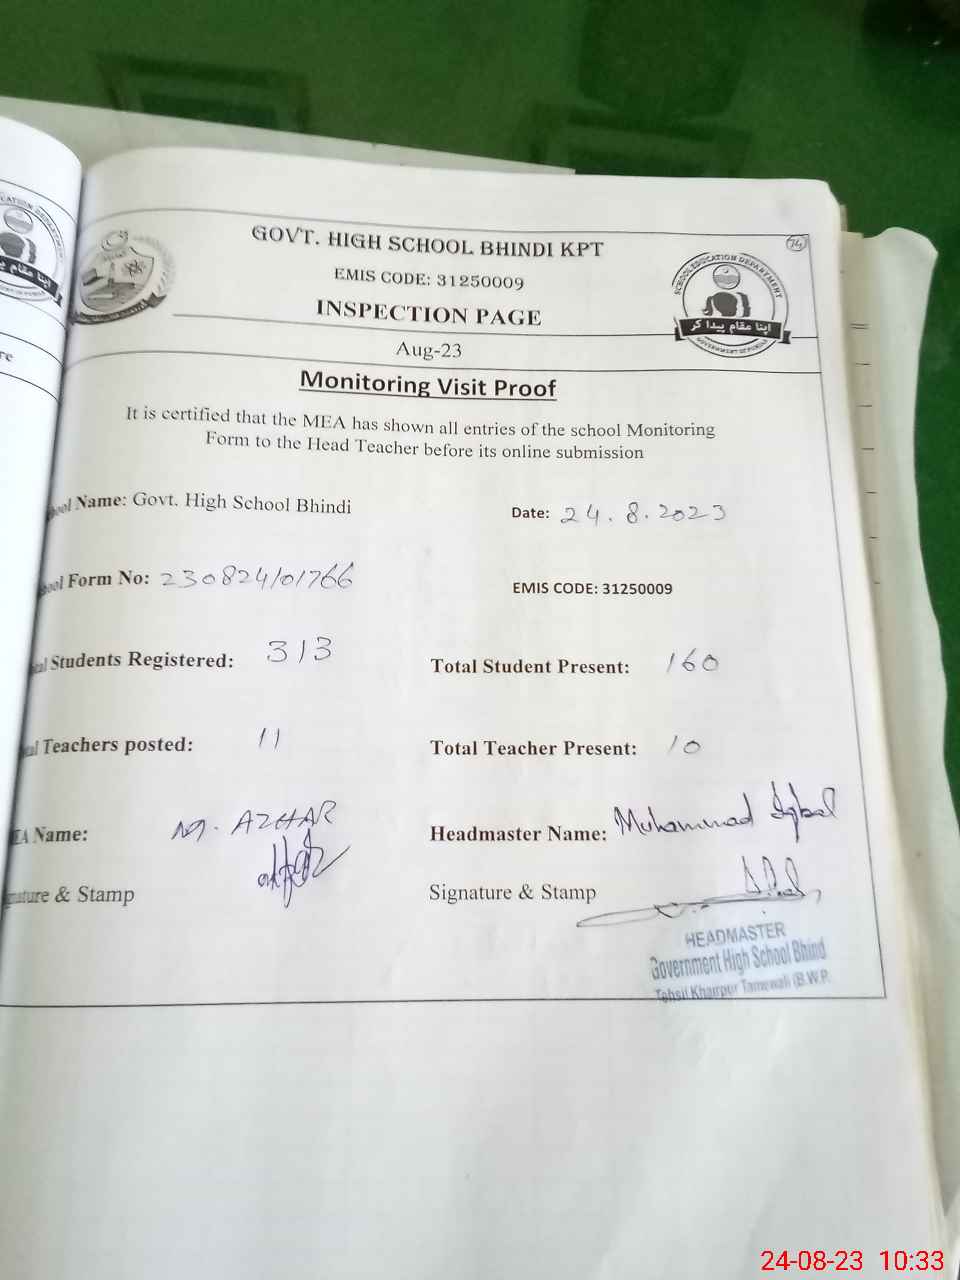 74
GOVT. HIGH SCHOOL BHINDI KPT
EMIS CODE: 31250009
INSPECTION PAGE
SCHOOL EDUCATION DEPARTMENT
اپنا مقام پیدا کر
GOVERNMENT OF PUNJAB
Aug-23
Monitoring Visit Proof
It is certified that the MEA has shown all entries of the school Monitoring
Form to the Head Teacher before its online submission
ool Name: Govt. High School Bhindi Date: 24.8.2023
ool Form No: 230824/01766 EMIS CODE: 31250009
al Students Registered: 313 Total Student Present: 160
al Teachers posted: 11 Total Teacher Present: 10
EA Name: M. AZHAR Headmaster Name: Muhammad Iqbal
nature & Stamp Signature & Stamp
HEADMASTER
Government High School Bhind
Tehsil Khairpur Tamewali (B.W.P.
24-08-23 10:33